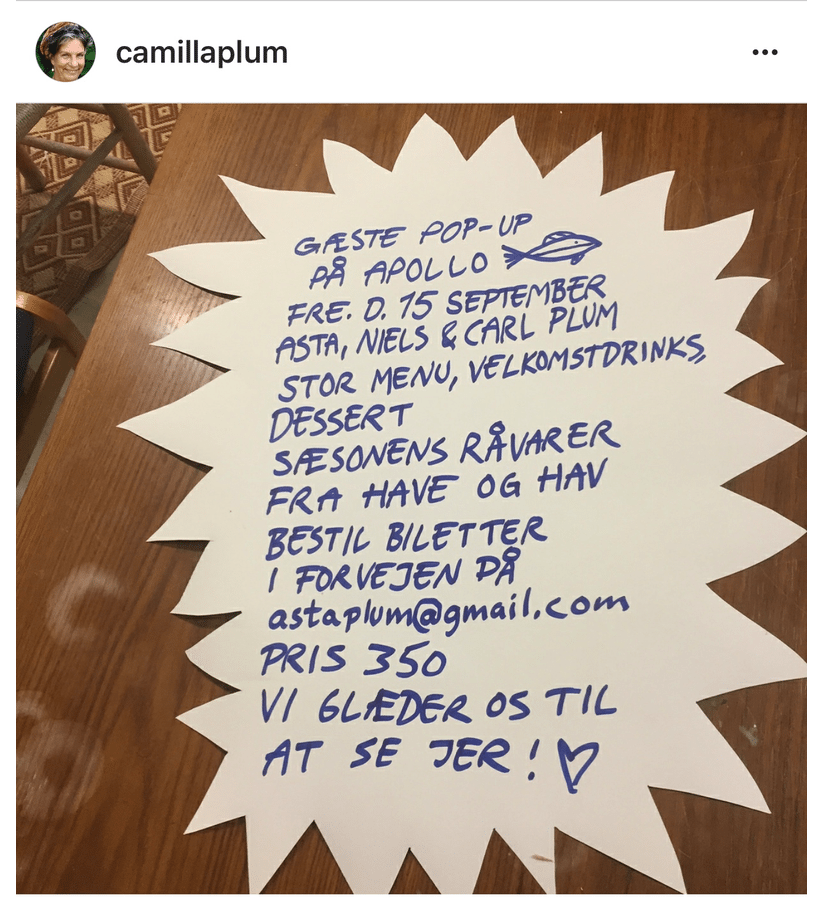 camillaplum
GÆSTE POP-UP
PÅ APOLLO
FRE. D. 15 SEPTEMBER
ASTA, NIELS & CARL PLUM
STOR MENU, VELKOMSTDRINKS,
DESSERT
SÆSONENS RÅVARER
FRA HAVE OG HAV
BESTIL BILETTER
I FORVEJEN PÅ
astaplum@gmail.com
PRIS 350
VI GLÆDER OS TIL
AT SE JER! ♡